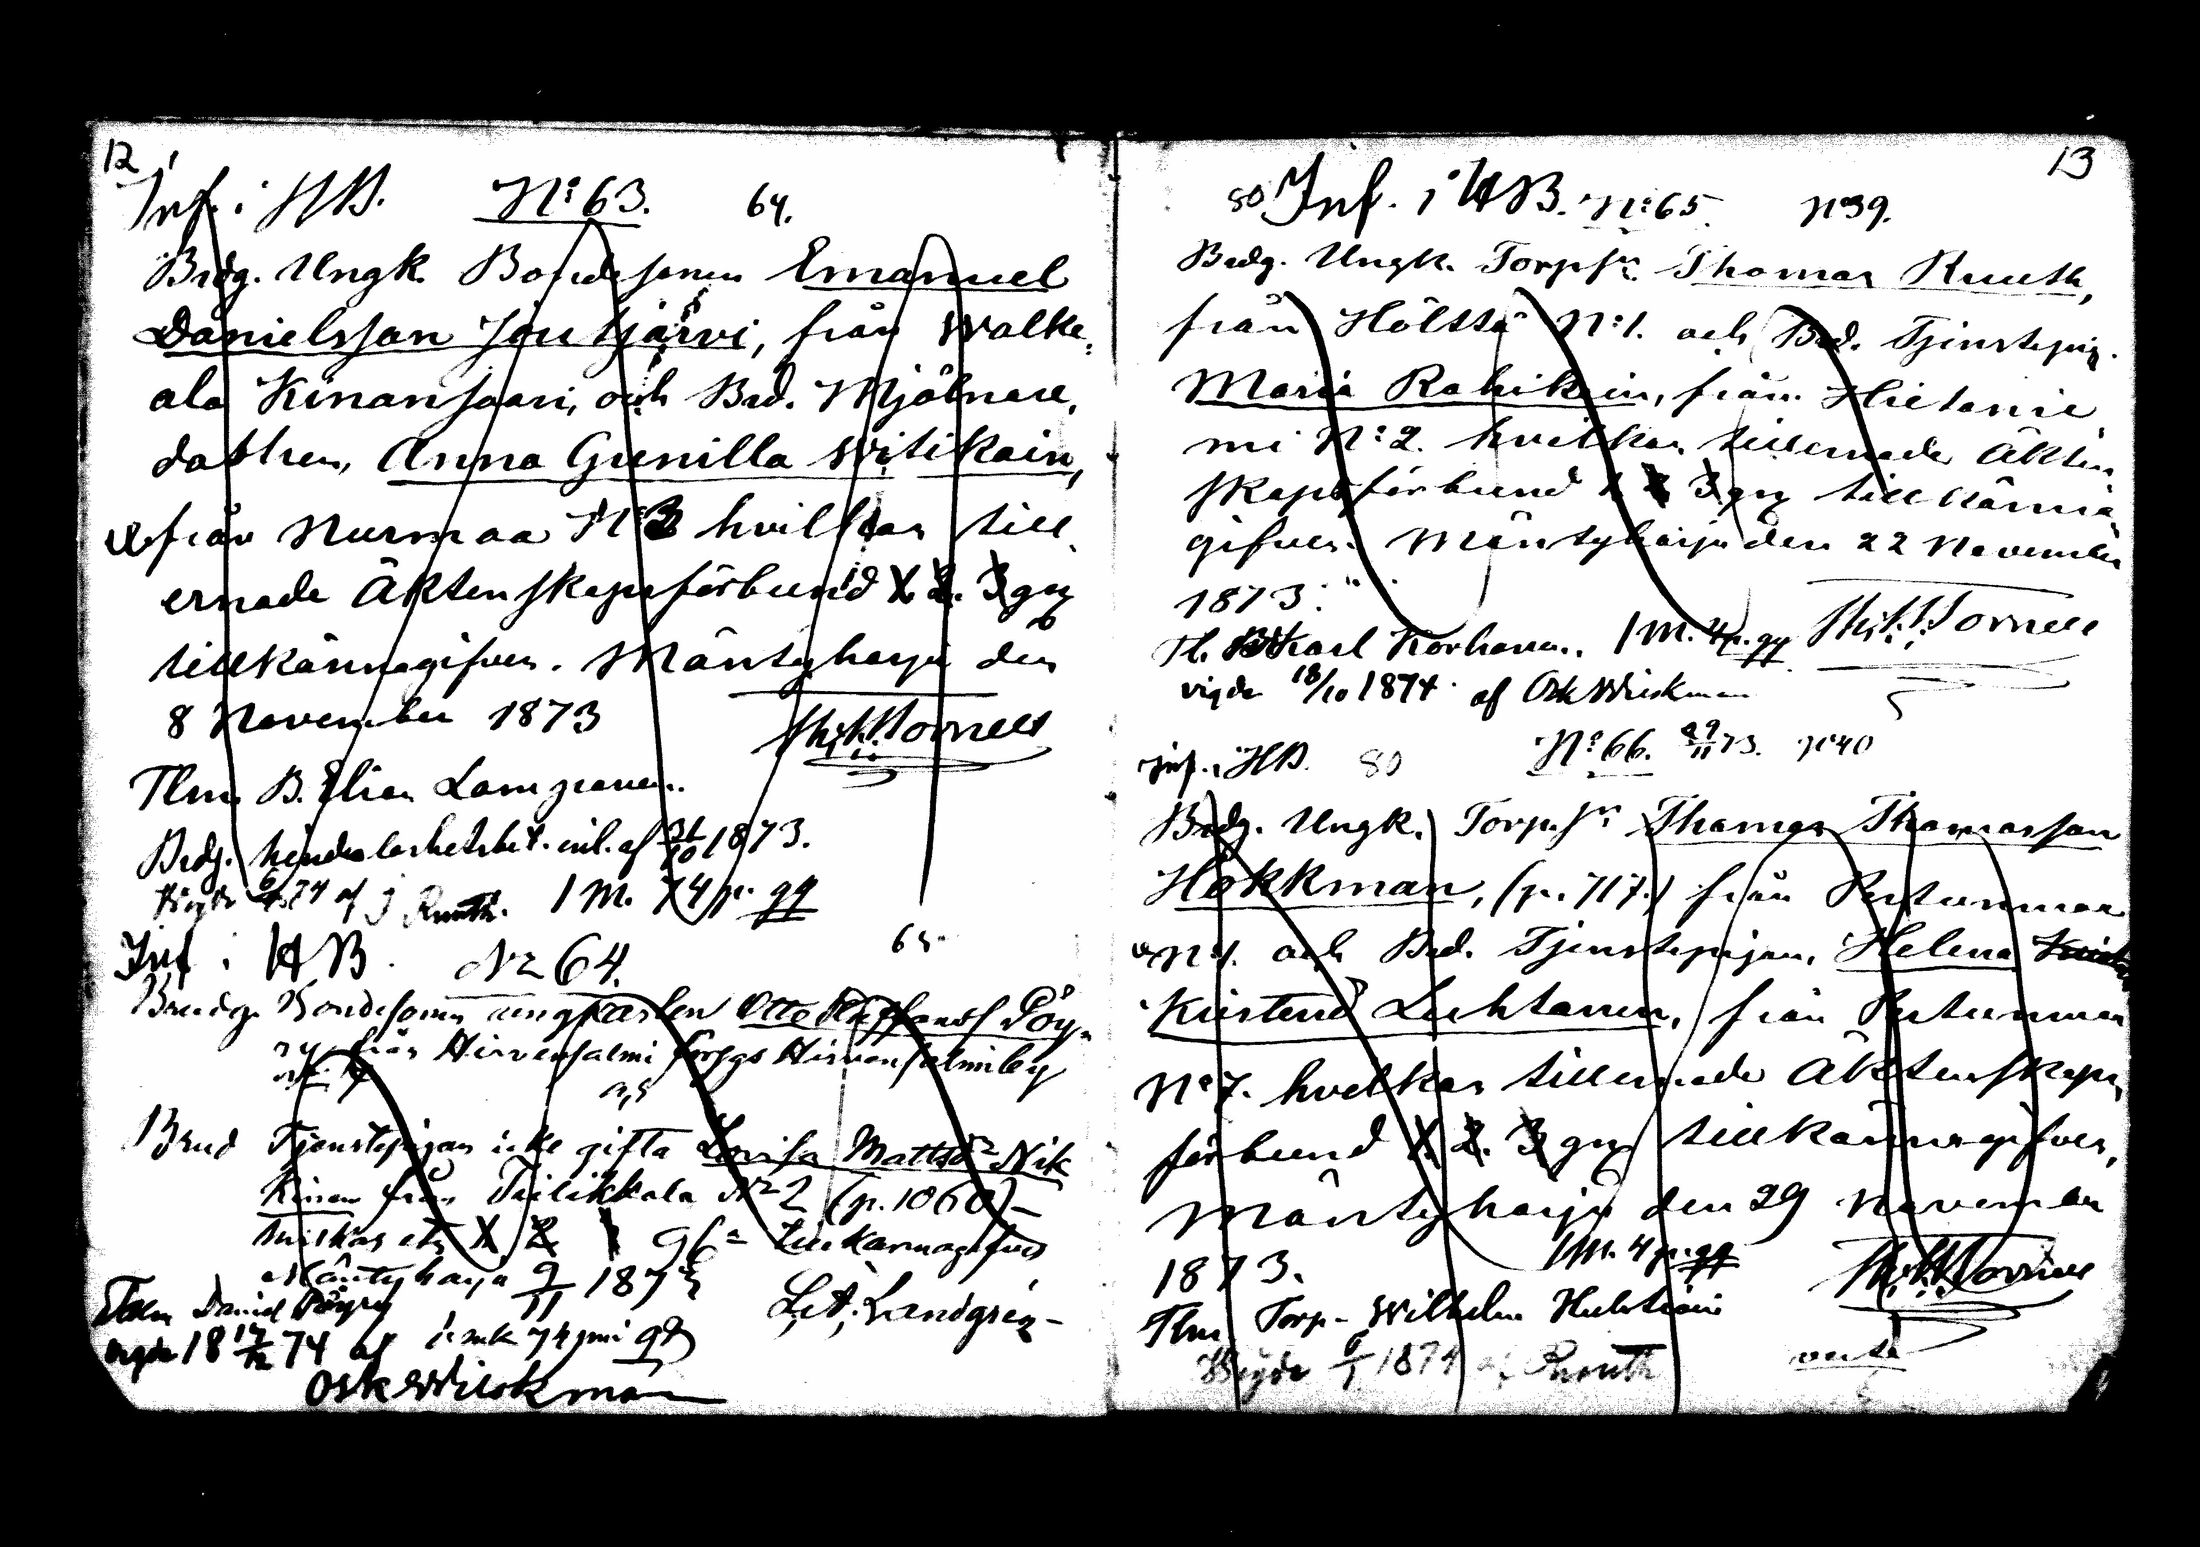 12
Inf. i HB. N:o 63. 64.
Brdg. Ungk. Bondesonen Emanuel
Danielsson Joutsjärvi, från Walke-
ala Kinansaari, och Brd. Mjölnare-
dottren, Anna Gunilla Witikain,
från Nurmaa N:o hvilkas till-
ernade Äktenskapsförbund 1. 2. 3 gg
tillkännagifves. Mäntyharju den
8 November 1873
Tlm. B. Elias
Brdg. hinderlöshetsbet. inl. af 31/10 1873.
Vigde 74 af J Ruuth. 1 M. 74 p. gg
Inf i HB. N:o 64. 65.
Brudg. Bondesonen ungkarlen Otto Pöy-
ry från Hirvensalmi sorgs Hirvensalmi by
Brud Tjenstepigan icke gifta Lovisa Mattsdr Nik
kinen från Tiilikkala N:o 2 (p. 1060)
hvilkas etc 1. 2. gg tillkännagifves
Mäntyharju 9/11 1873
Tlm Daniel Pöyry L. A. Landgrén
vigde 18 74 af 1 mk 74 pni gg
Osk Wilskman
13
80 Inf. i HB. N:o 65. N:o 39.
Brdg. Ungk. Torpsn Thomas Ruuth,
från Höltta N:o 1. och Brd. Tjenstepig.
Maria Rahikain, från Hietanie
mi N:o 2. hvilkas tillernade Äkten
skapsförbund 1 2 3 gg tillkänna
gifves. Mäntyharju den 22 November
1873.
Tl. Karl Korhonen. 1 M. 4 p. gg
vigde 18/10 1874 af Osk Wilskman
inf. i HB. 80 N:o 66. 29/11 73. N:o 40
Brdg. Ungk. Torp.sn Thomas Thomasson
Hokkman, (p. 717.) från Pertunmaa
N:o 1. och Brd. Tjenstepigan, Helena
Kristina Lehtanen, från Pertunmaa
N:o 7. hvilkas tillernade Äktenskaps
förbund 1 2. 3 gg tillkännagifves,
Mäntyharju den 29 November
1873. 1 M. 4 p. gg
Tlm Torp. Wilhelm
Vigde 6/1 1874 af Ruuth